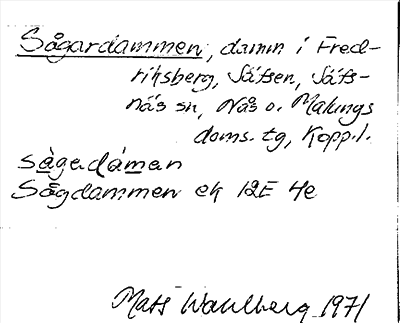 Sågardammen, damm i Fred-
riksberg, Säfsen, Säfs-
näs sn, Nås o. Malungs
doms. tg, Kopp.l.
sågadámen
Sågdammen ek 12E 4e
Mats Wahlberg 1971